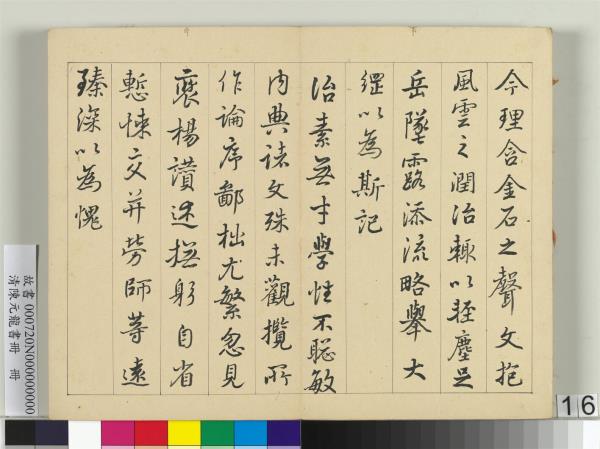 今理含金石之聲文抱
風雲之潤治輒以輕塵足
岳墜露添流略舉大
綱以為斯記
治素無才學性不聰敏
內典諸文殊未觀攬所
作論序鄙拙尤繁忽見
褒揚讚述撫躬自省
慙悚交并勞師等遠
臻深以為愧
故書000720N000000000
清陳元龍書冊 冊
16